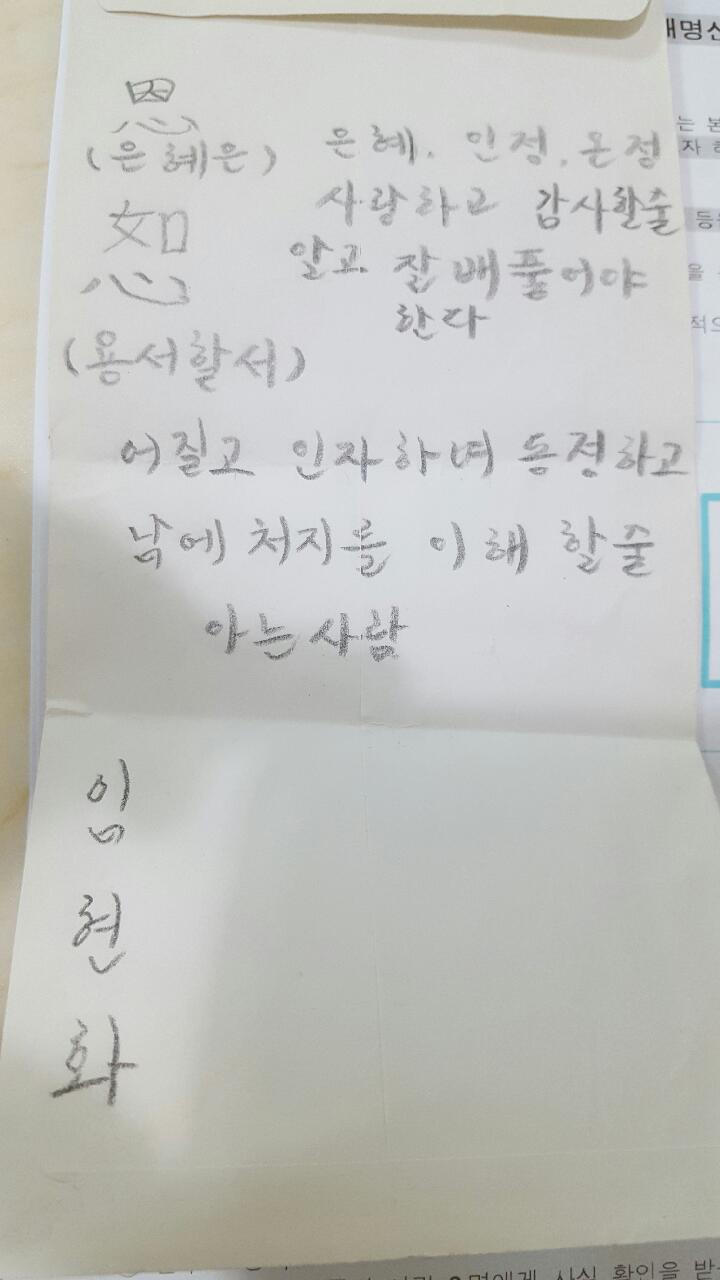 恩
(은혜은) 은혜. 인정. 온정
사랑하고 감사할줄
恕
알고 잘 배풀어야
한다
(용서할서)
어질고 인자하며 동정하고
남에 처지를 이해 할줄
아는 사람
임
현
화
는 본
자 하
등을
을
적으